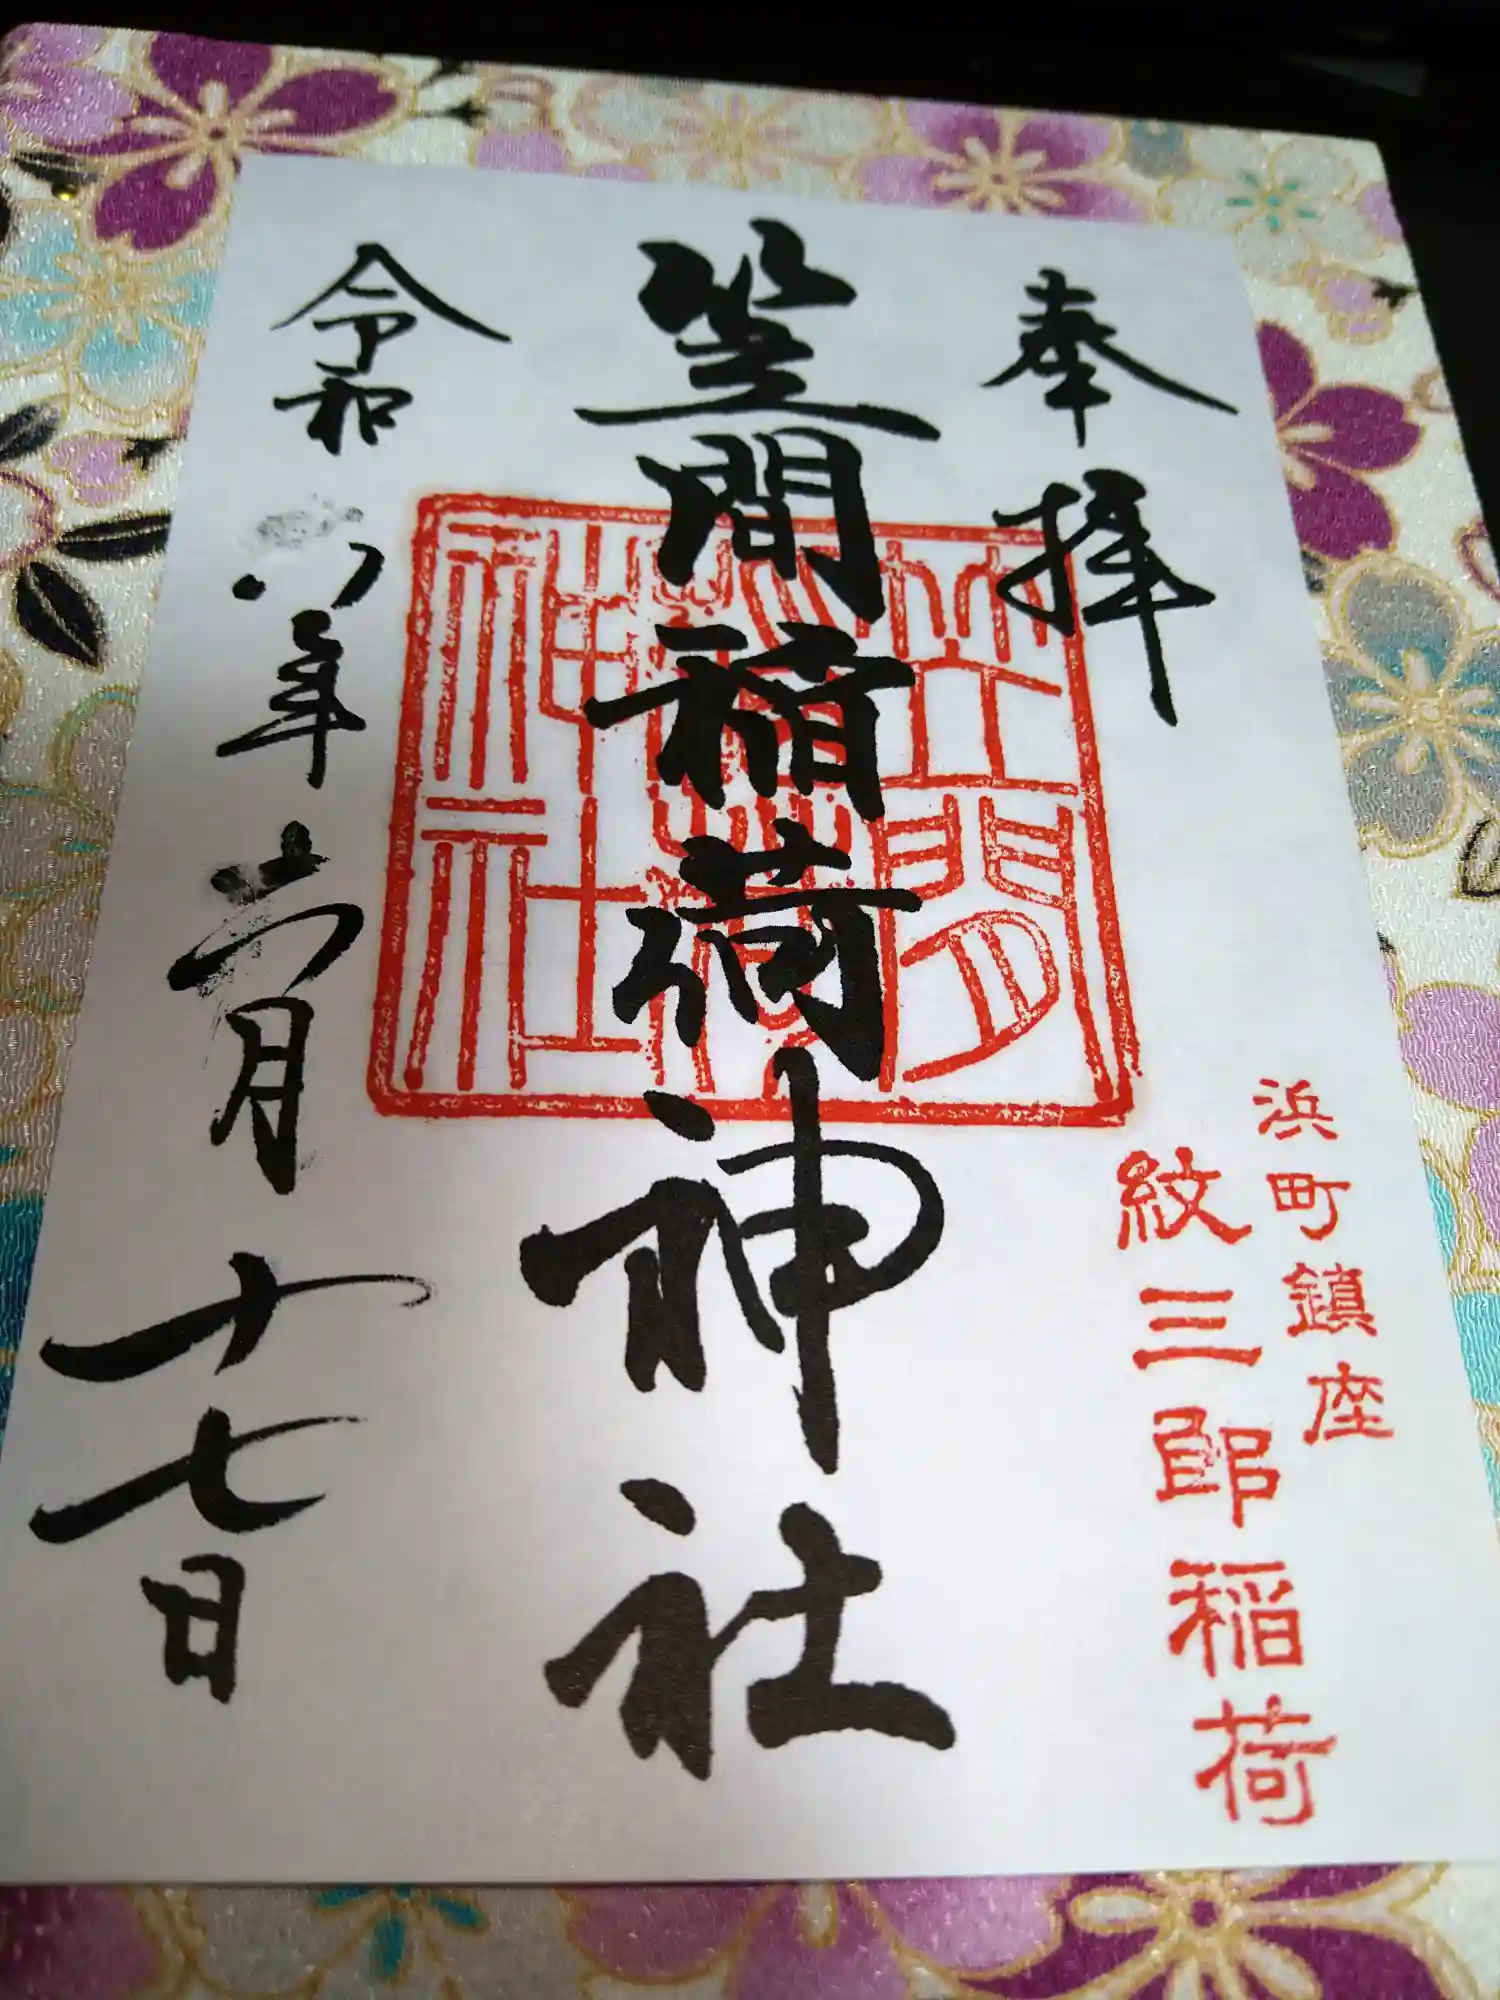 奉拝
浜町鎮座
紋三郎稲荷
笠間稲荷神社
笠間
稲荷
神社
令和八年六月十七日